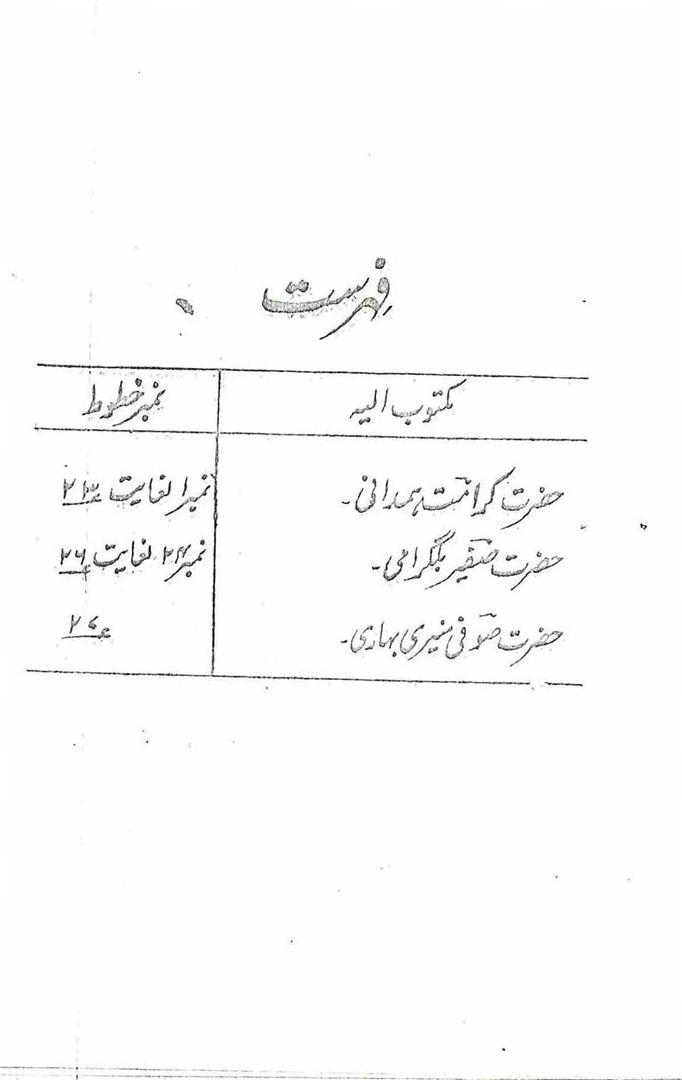 فہرست
مکتوب الیہ نمبر خطوط
حضرت کرامت ہمدانی۔ نمبر ۱ لغایت ۲۳
حضرت صفیر بلگرامی۔ نمبر ۲۴ لغایت ۲۶
حضرت صوفی منیری بہاری۔ ۲۷